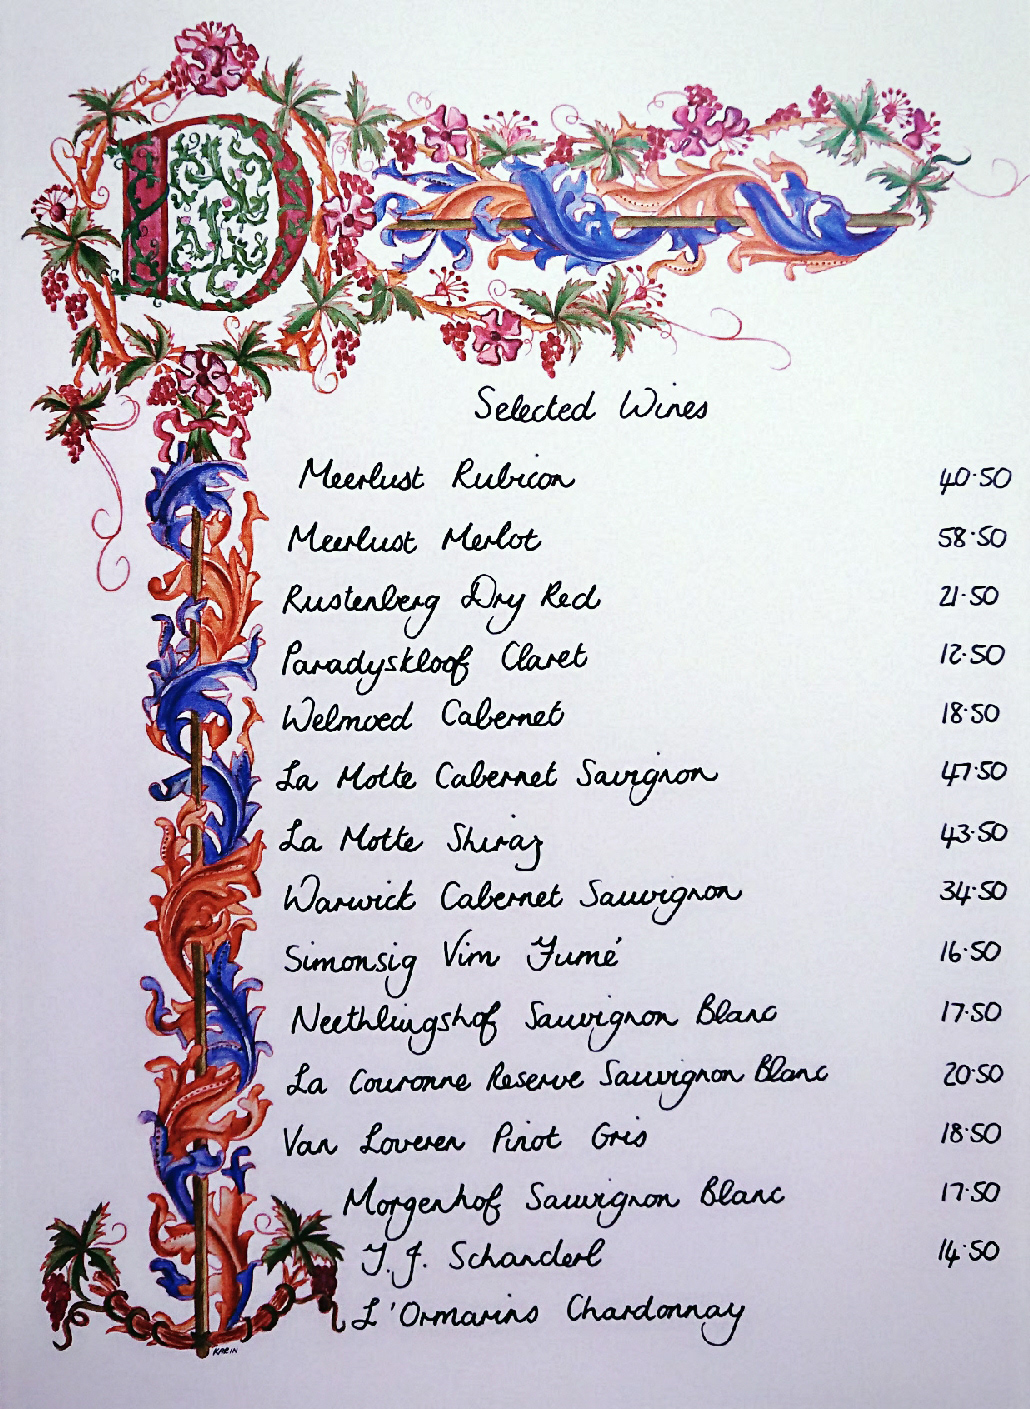 D
Selected Wines
Meerlust Rubicon 40·50
Meerlust Merlot 58·50
Rustenberg Dry Red 21·50
Paradyskloof Claret 12·50
Welmoed Cabernet 18·50
La Motte Cabernet Sauvignon 47·50
La Motte Shiraz 43·50
Warwick Cabernet Sauvignon 34·50
Simonsig Vim Fumé 16·50
Neethlingshof Sauvignon Blanc 17·50
La Couronne Reserve Sauvignon Blanc 20·50
Van Loveren Pinot Gris 18·50
Morgenhof Sauvignon Blanc 17·50
T.J. Schanderl 14·50
L'Ormarins Chardonnay
KARIN